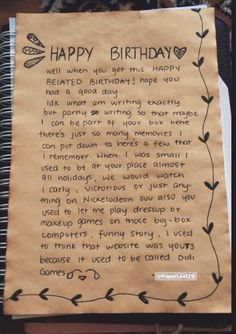 HAPPY BIRTHDAY
well when you get this HAPPY
BELATED BIRTHDAY! hope you
had a good day.
Idk what am writing exactly
but partly so writing so that maybe
I can be part of your box home
there's just so many memories I
can put down so here's a few that
I remember. When I was small I
used to be at your place almost
all holidays, we would watch
I carly, Victorious or just any-
thing on Nickelodeon ouu also you
used to let me play dressup or
makeup games on those big-box
computers, funny story, I used
to think that website was yours
because it used to be called Didi
Games
@PaperLert28